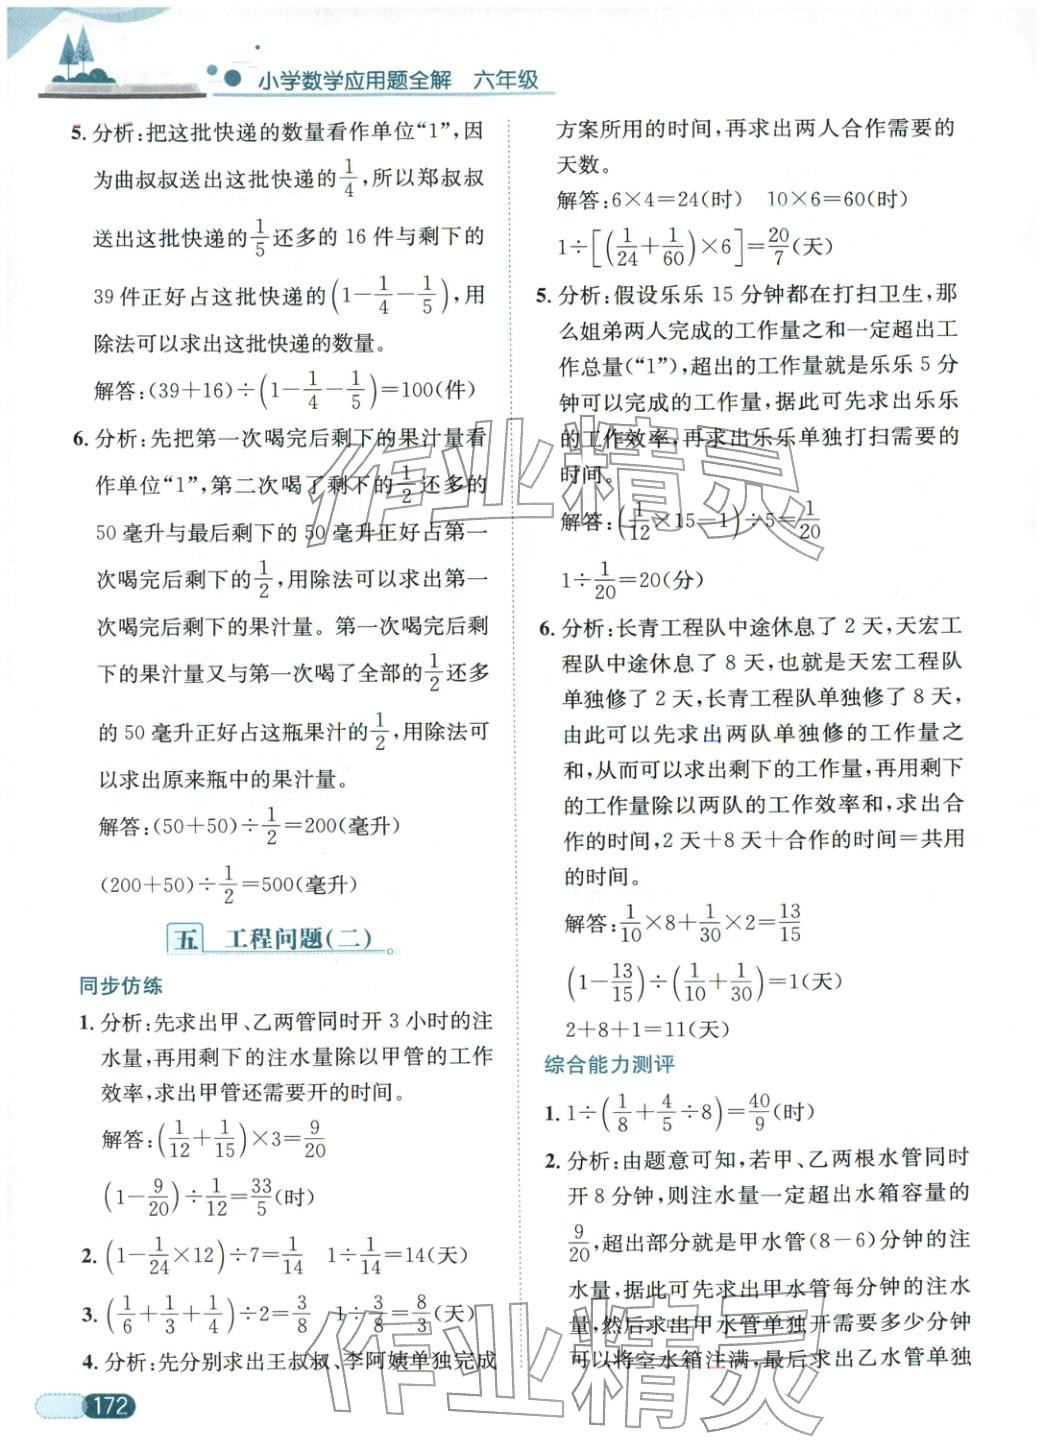 小学数学应用题全解 六年级
5. 分析:把这批快递的数量看作单位“1”,因
为曲叔叔送出这批快递的1/4,所以郑叔叔
送出这批快递的1/5还多的 16 件与剩下的
39 件正好占这批快递的(1-1/4-1/5),用
除法可以求出这批快递的数量。
解答:(39+16)÷(1-1/4-1/5)=100(件)
6. 分析:先把第一次喝完后剩下的果汁量看
作单位“1”,第二次喝了剩下的1/2还多的
50 毫升与最后剩下的 50 毫升正好占第一
次喝完后剩下的1/2,用除法可以求出第一
次喝完后剩下的果汁量。第一次喝完后剩
下的果汁量又与第一次喝了全部的1/2还多
的 50 毫升正好占这瓶果汁的1/2,用除法可
以求出原来瓶中的果汁量。
解答:(50+50)÷1/2=200(毫升)
(200+50)÷1/2=500(毫升)
五 工程问题(二)
同步仿练
1. 分析:先求出甲、乙两管同时开 3 小时的注
水量,再用剩下的注水量除以甲管的工作
效率,求出甲管还需要开的时间。
解答:(1/12+1/15)×3=9/20
(1-9/20)÷1/12=33/5(时)
2. (1-1/24×12)÷7=1/14 1÷1/14=14(天)
3. (1/6+1/3+1/4)÷2=3/8 1÷3/8=8/3(天)
4. 分析:先分别求出王叔叔、李阿姨单独完成
方案所用的时间,再求出两人合作需要的
天数。
解答:6×4=24(时) 10×6=60(时)
1÷[(1/24+1/60)×6]=20/7(天)
5. 分析:假设乐乐 15 分钟都在打扫卫生,那
么姐弟两人完成的工作量之和一定超出工
作总量(“1”),超出的工作量就是乐乐 5 分
钟可以完成的工作量,据此可先求出乐乐
的工作效率,再求出乐乐单独打扫需要的
时间。
解答:(1/12×15-1)÷5=1/20
1÷1/20=20(分)
6. 分析:长青工程队中途休息了 2 天,天宏工
程队中途休息了 8 天,也就是天宏工程队
单独修了 2 天,长青工程队单独修了 8 天,
由此可以先求出两队单独修的工作量之
和,从而可以求出剩下的工作量,再用剩下
的工作量除以两队的工作效率和,求出合
作的时间,2 天+8 天+合作的时间=共用
的时间。
解答:1/10×8+1/30×2=13/15
(1-13/15)÷(1/10+1/30)=1(天)
2+8+1=11(天)
综合能力测评
1. 1÷(1/8+4/5÷8)=40/9(时)
2. 分析:由题意可知,若甲、乙两根水管同时
开 8 分钟,则注水量一定超出水箱容量的
9/20,超出部分就是甲水管(8-6)分钟的注
水量,据此可先求出甲水管每分钟的注水
量,然后求出甲水管单独开需要多少分钟
可以将空水箱注满,最后求出乙水管单独
作业精灵
作业精灵
172